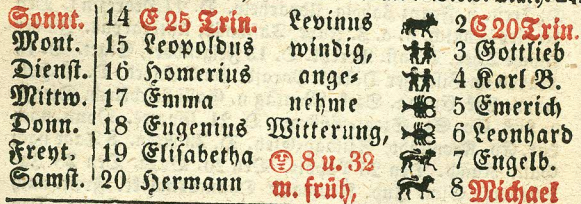 Sonnt. 14 E 25 Trin. Levinus 2 E 20 Trin.
Mont. 15 Leopoldus windig, 3 Gottlieb
Dienst. 16 Homerius ange- 4 Karl B.
Mittw. 17 Emma nehme 5 Emerich
Donn. 18 Eugenius Witterung, 6 Leonhard
Freyt. 19 Elisabetha 8 u. 32 7 Engelb.
Samst. 20 Hermann m. früh, 8 Michael